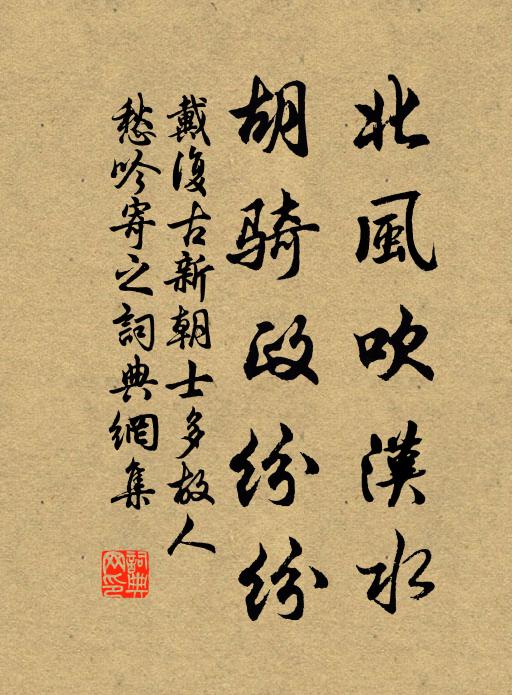 北風吹漢水
胡騎政紛紛
戴復古新朝士多故人
愁吟寄之詞典網集
詞典網印